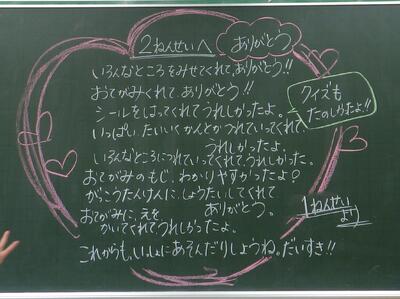 2ねんせいへ
ありがとう
いろんなところをみせてくれて、ありがとう!!
おてがみくれて、ありがとう!!
シールをはってくれてうれしかったよ。
クイズも
たのしかったよ!!
いっぱい、たいいくかんとかつれていってくれて、
うれしかったよ。
いろんなところにつれていってくれて、うれしかった。
おてがみのもじ、わかりやすかったよ?
がっこうたんけんに、しょうたいしてくれて
ありがとう。
おてがみに、えを
かいてくれて、うれしかったよ。
これからも、いっしょにあそんだりしようね。だいすき!!
1ねんせい
より